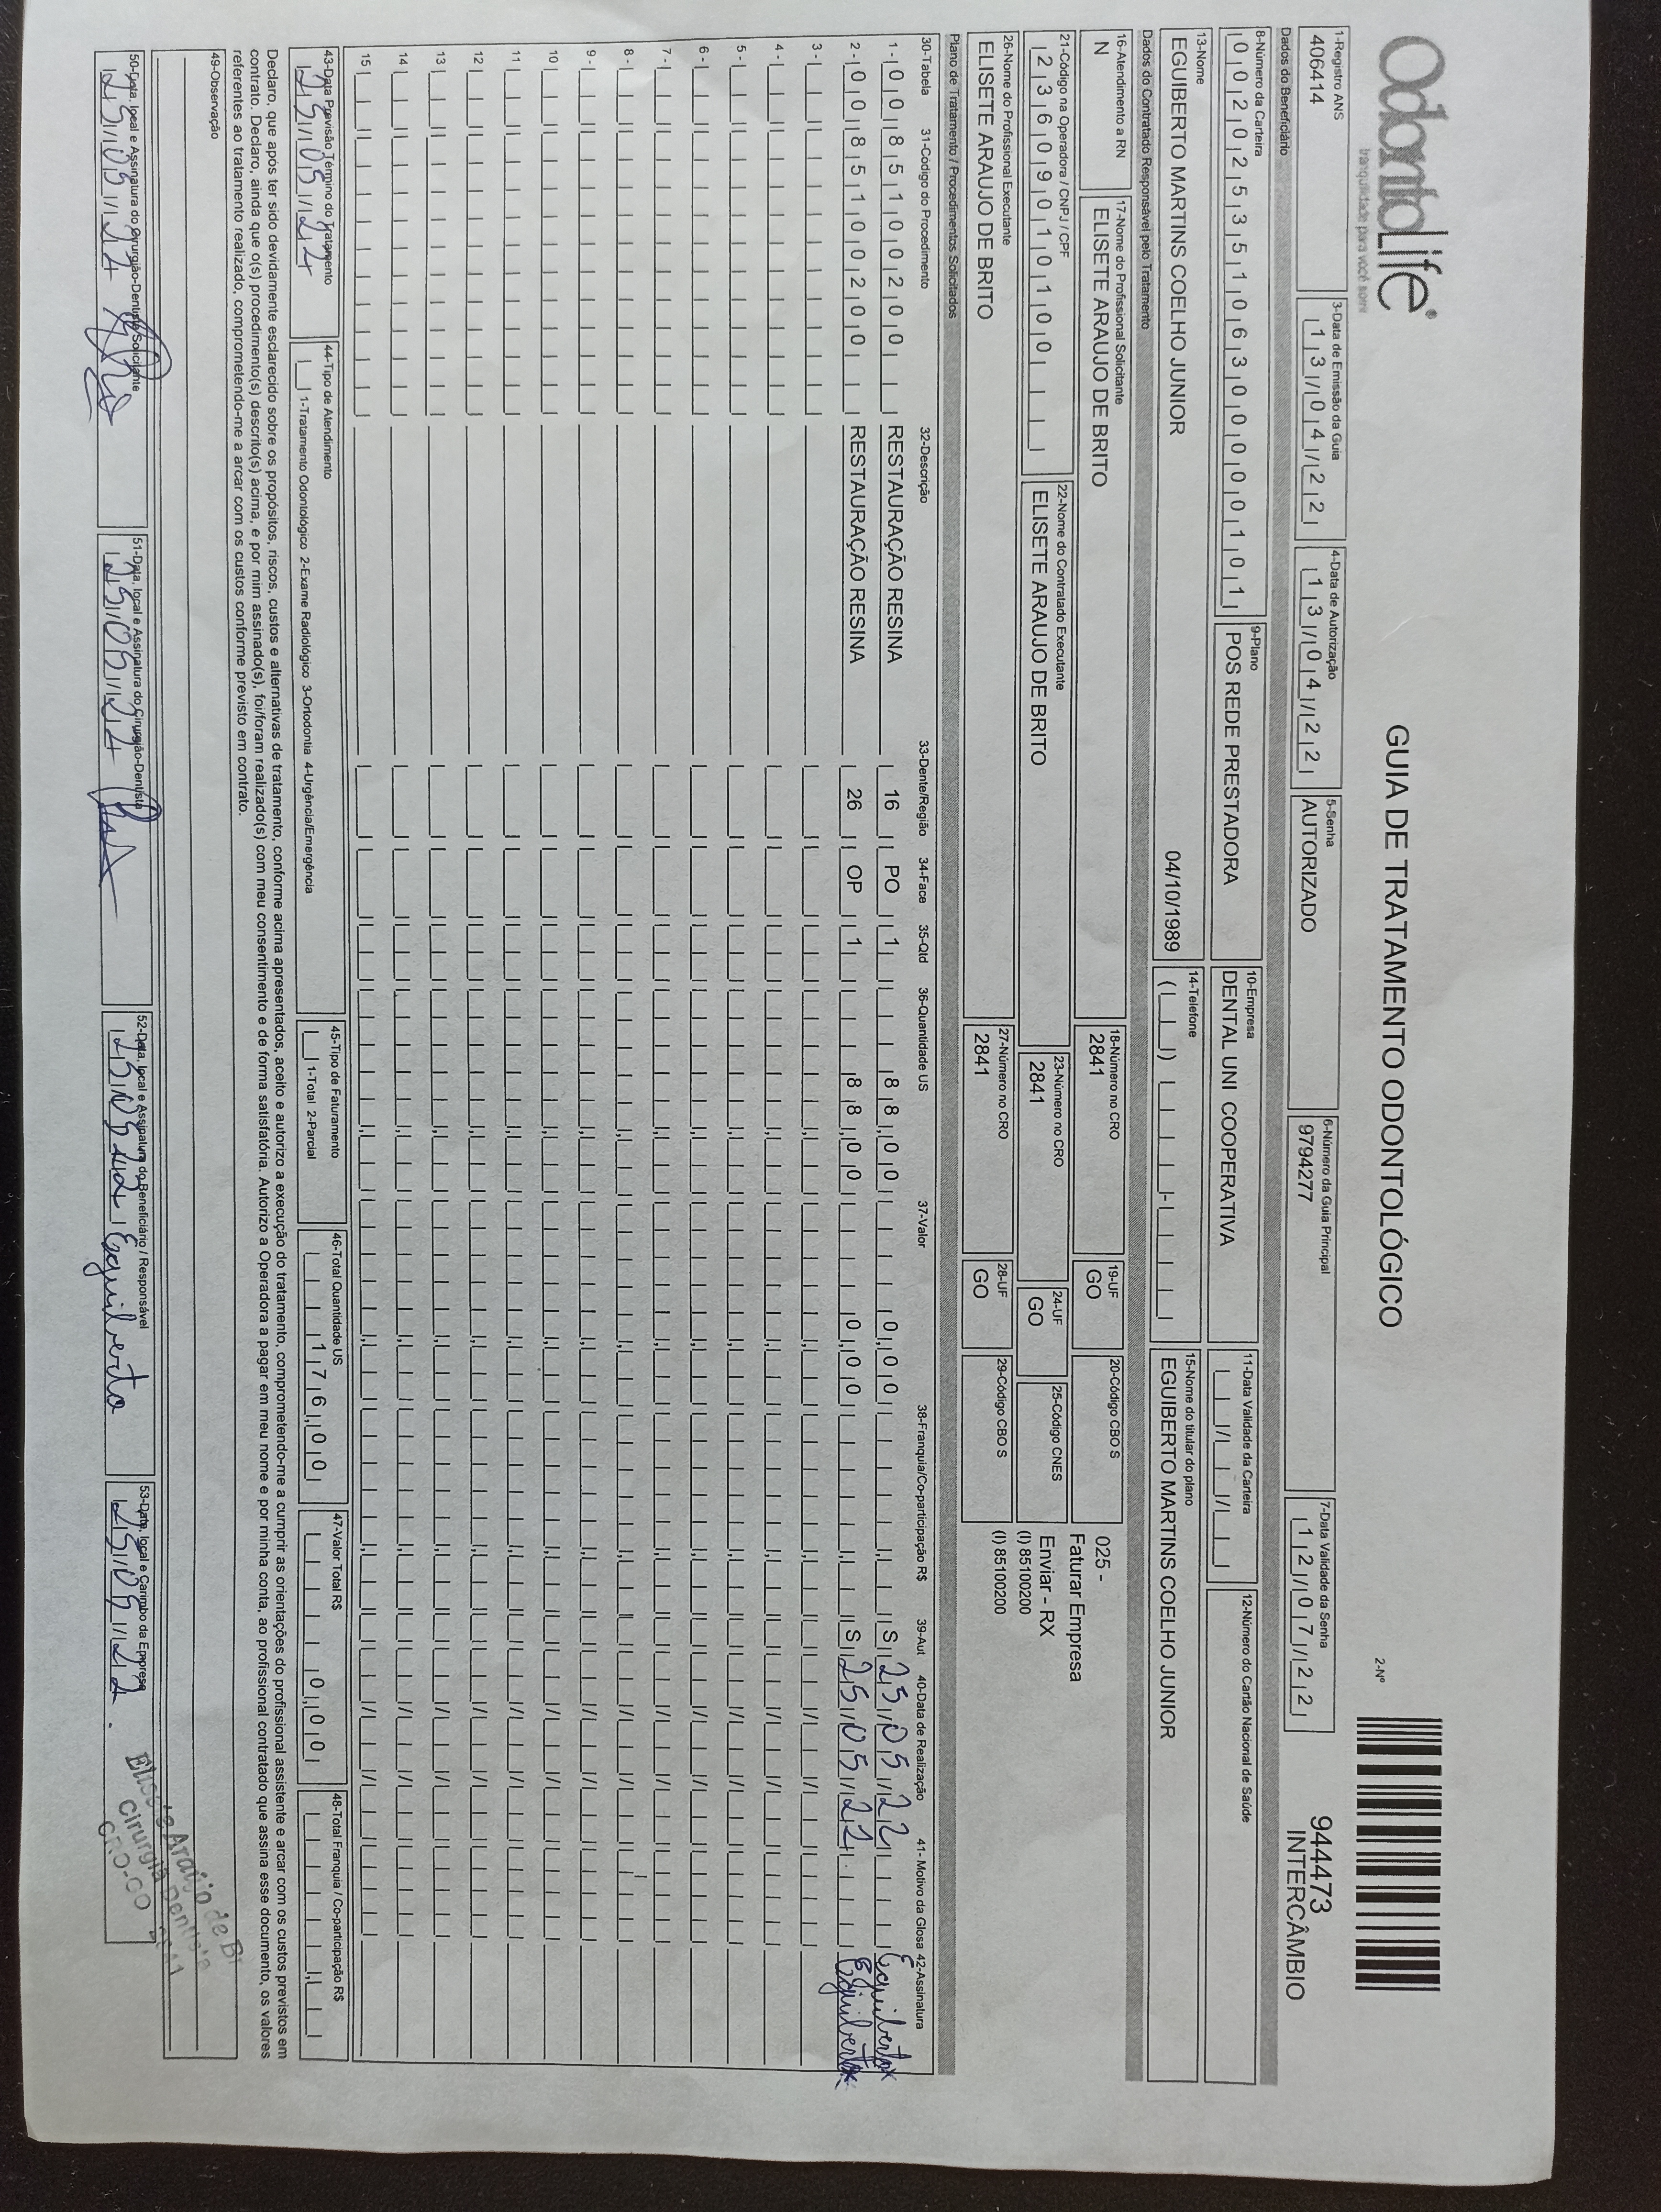 OdontoLife®
tranquilidade para você sorrir
GUIA DE TRATAMENTO ODONTOLÓGICO
2-Nº
944473
INTERCÂMBIO
1-Registro ANS
406414
3-Data de Emissão da Guia
13/04/22
4-Data de Autorização
13/04/22
5-Senha
AUTORIZADO
6-Número da Guia Principal
9794277
7-Data Validade da Senha
12/07/22
Dados do Beneficiário
8-Número da Carteira
00202535106300000101
9-Plano
POS REDE PRESTADORA
10-Empresa
DENTAL UNI COOPERATIVA
11-Data Validade da Carteira
12-Número do Cartão Nacional de Saúde
13-Nome
EGUIBERTO MARTINS COELHO JUNIOR 04/10/1989
14-Telefone
15-Nome do titular do plano
EGUIBERTO MARTINS COELHO JUNIOR
Dados do Contratado Responsável pelo Tratamento
16-Atendimento a RN
N
17-Nome do Profissional Solicitante
ELISETE ARAUJO DE BRITO
18-Número no CRO
2841
19-UF
GO
20-Código CBO S
025 -
Faturar Empresa
21-Código na Operadora / CNPJ / CPF
23609010100
22-Nome do Contratado Executante
ELISETE ARAUJO DE BRITO
23-Número no CRO
2841
24-UF
GO
25-Código CNES
Enviar - RX
(I) 85100200
(I) 85100200
26-Nome do Profissional Executante
ELISETE ARAUJO DE BRITO
27-Número no CRO
2841
28-UF
GO
29-Código CBO S
Plano de Tratamento / Procedimentos Solicitados
30-Tabela 31-Código do Procedimento 32-Descrição 33-Dente/Região 34-Face 35-Qtd 36-Quantidade US 37-Valor 38-Franquia/Co-participação R$ 39-Aut 40-Data de Realização 41- Motivo da Glosa 42-Assinatura
1- 00 85100200 RESTAURAÇÃO RESINA 16 PO 1 88,00 0,00 S 25/05/22 Eguiberto
2- 00 85100200 RESTAURAÇÃO RESINA 26 OP 1 88,00 0,00 S 25/05/22 Eguiberto
3-
4-
5-
6-
7-
8-
9-
10
11
12
13
14
15
43-Data Previsão Término do Tratamento
25/05/22
44-Tipo de Atendimento
1-Tratamento Odontológico 2-Exame Radiológico 3-Ortodontia 4-Urgência/Emergência
45-Tipo de Faturamento
1-Total 2-Parcial
46-Total Quantidade US
176,00
47-Valor Total R$
0,00
48-Total Franquia / Co-participação R$
Declaro, que após ter sido devidamente esclarecido sobre os propósitos, riscos, custos e alternativas de tratamento, conforme acima apresentados, aceito e autorizo a execução do tratamento, comprometendo-me a cumprir as orientações do profissional assistente e arcar com os custos previstos em
contrato. Declaro, ainda que o(s) procedimento(s) descrito(s) acima, e por mim assinado(s), foi/foram realizado(s) com meu consentimento e de forma satisfatória. Autorizo a Operadora a pagar em meu nome e por minha conta, ao profissional contratado que assina esse documento, os valores
referentes ao tratamento realizado, comprometendo-me a arcar com os custos conforme previsto em contrato.
49-Observação
50-Data, local e Assinatura do Cirurgião-Dentista Solicitante
25/05/22
51-Data, local e Assinatura do Cirurgião-Dentista
25/05/22
52-Data, local e Assinatura do Beneficiário / Responsável
25/05/22 Eguiberto
53-Data, local e Carimbo da Empresa
25/05/22
Elisete Araújo de Br
Cirurgiã Dentista
CRO-GO 2841